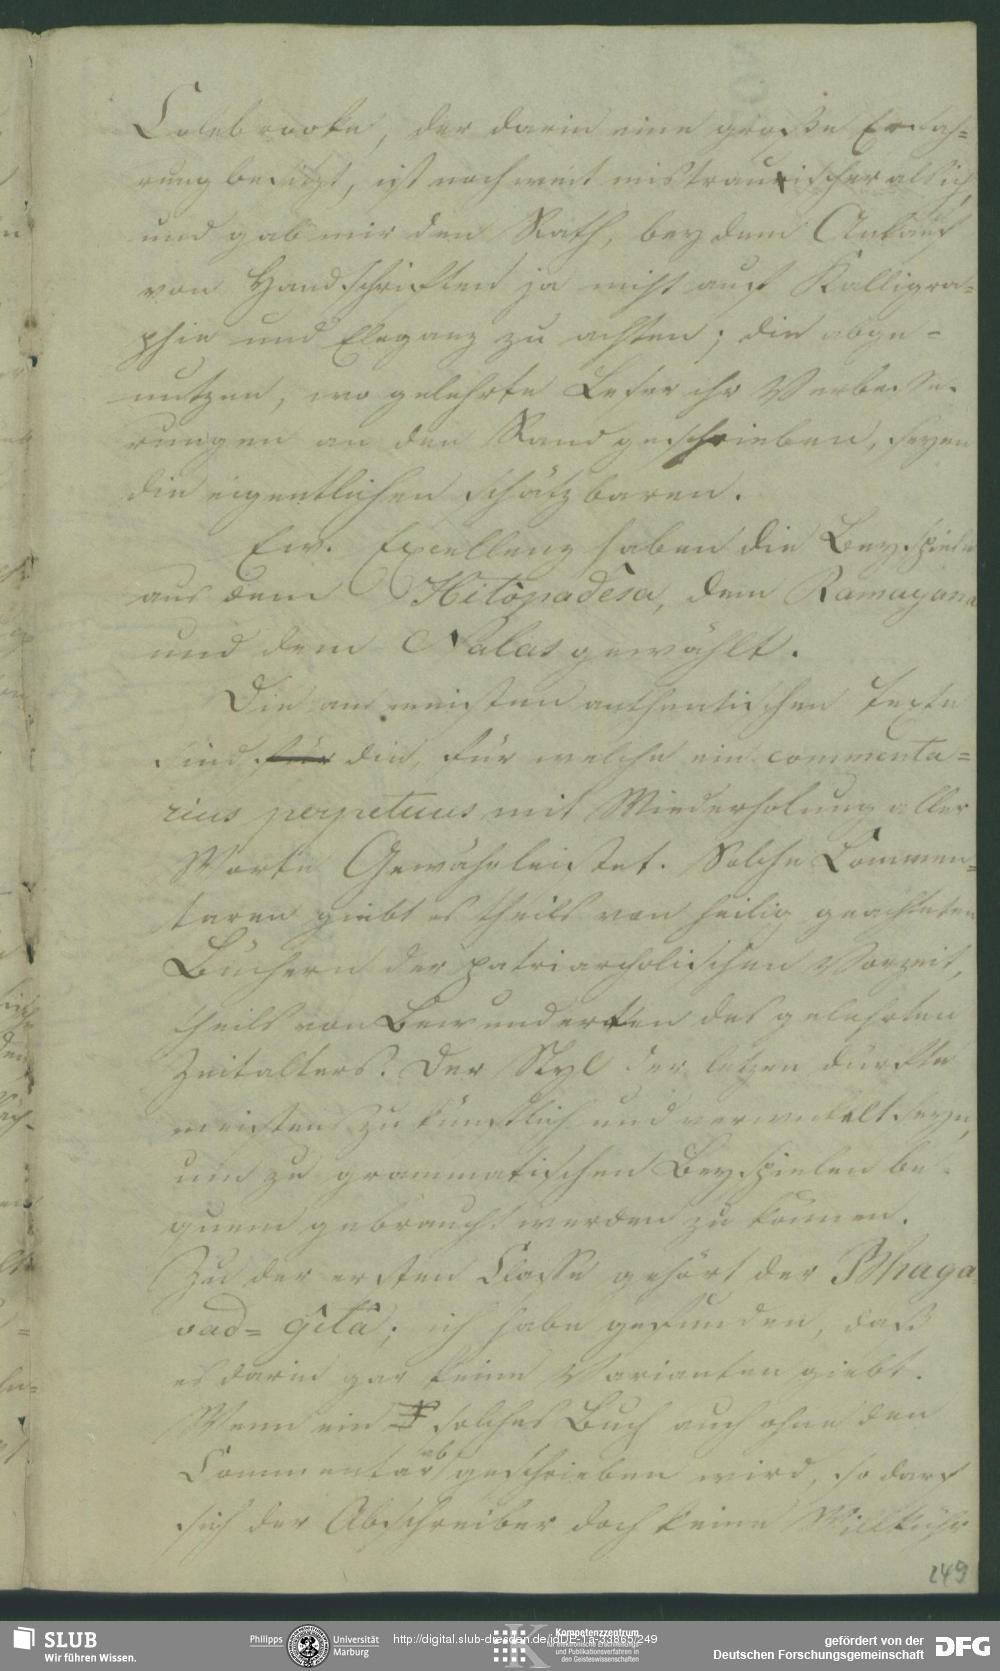 Colebrooke, der darin eine große Erfah=
rung besitzt, ist noch weit mistrauischer als ich,
und gab mir den Rath, bey dem Ankauf
von Handschriften ja nicht auf Kalligra=
phie und Eleganz zu achten; die abge=
nutzen, wo gelehrte Leser ihr Verbesse-
rungen an den Rand geschrieben, seyen
die eigentlichen schätzbaren.
Ew. Excellenz haben die Beyspiele
aus dem Hitôpadêsa, dem Ramayana
und dem Nalas gewählt.
Die am meisten authentischen Texte
sind für die, für welche ein commenta=
rius perpetuus mit Wiederholung aller
Worte Gewähr leistet. Solche Commen=
taren giebt es theils von heilig geachteten
Büchern der patriarcholischen Vorzeit,
theils von Bewunderten des gelehrten
Zeitalters. Der Styl der letzen dürfte
meistens zu künstlich und verwickelt seyn,
um zu grammatischen Beyspielen be-
quem gebraucht werden zu können.
Zu der ersten Classe gehört der Bhaga
vad= gîtâ; ich habe gefunden, daß
es darin gar keine Varianten giebt.
Wenn ein solches Buch auch ohne den
Commentar abgeschrieben wird, so darf
sich der Abschreiber doch keine Willkühr
249
SLUB
Wir führen Wissen.
Philipps Universität
Marburg
http://digital.slub-dresden.de/idDE-1a-33865/249
Kompetenzzentrum
für elektronische Erschließungs-
und Publikationsverfahren in
den Geisteswissenschaften
gefördert von der
Deutschen Forschungsgemeinschaft
DFG